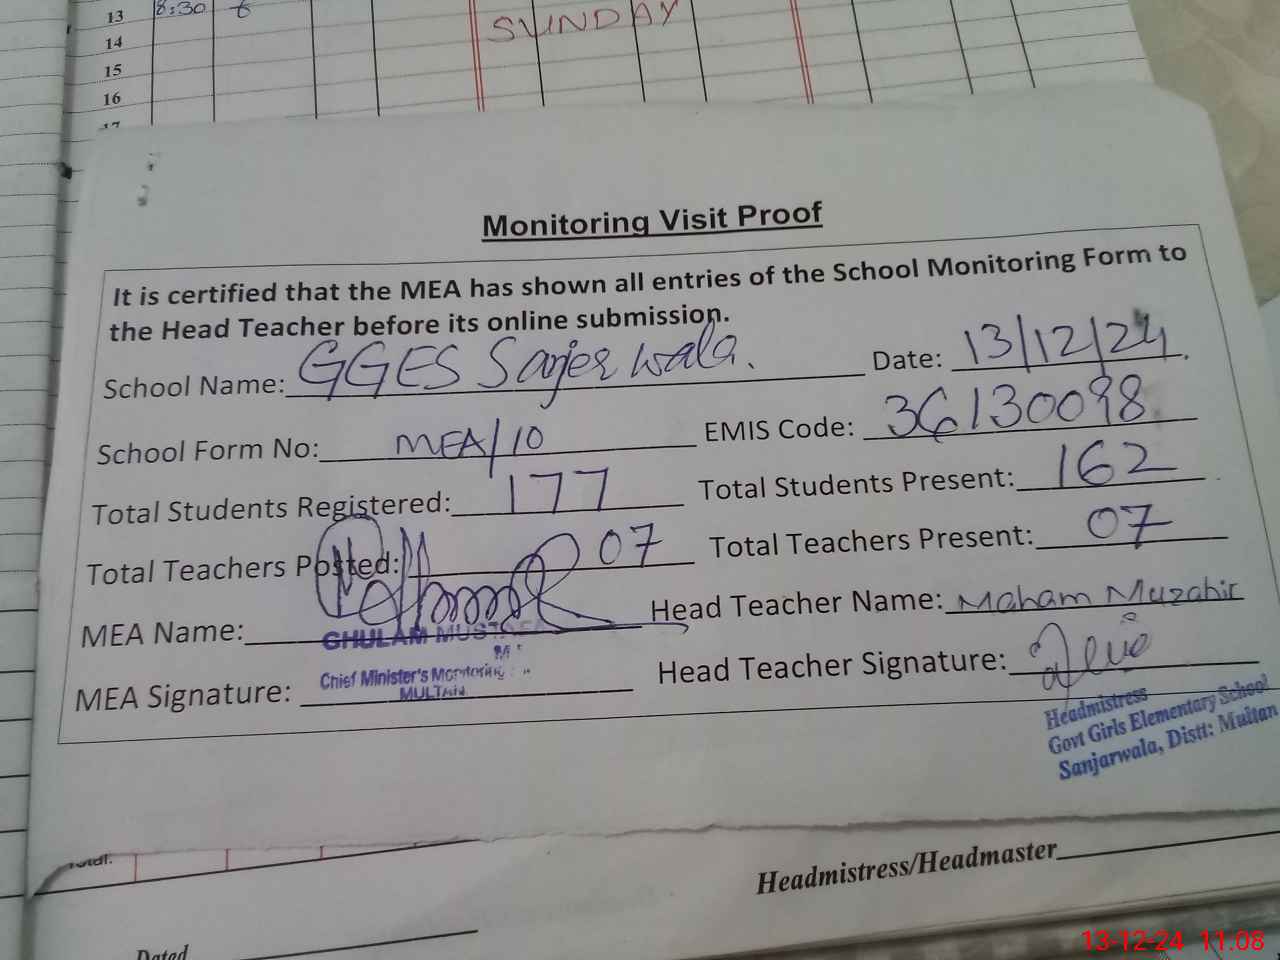 13 8:30
SUNDAY
14
15
16
17
Monitoring Visit Proof
It is certified that the MEA has shown all entries of the School Monitoring Form to
the Head Teacher before its online submission.
School Name: GGES Sanjerwala. Date: 13/12/24
School Form No: MEA/10 EMIS Code: 36130098
Total Students Registered: 177 Total Students Present: 162
Total Teachers Posted: 07 Total Teachers Present: 07
MEA Name: Head Teacher Name: Maham Muzahir
GHULAM MUSTAFA
MEA Signature: Head Teacher Signature:
Chief Minister's Monitoring
MULTAN
Headmistress
Govt Girls Elementary School
Sanjarwala, Distt: Multan
Total:
Headmistress/Headmaster
Dated
13-12-24 11.08